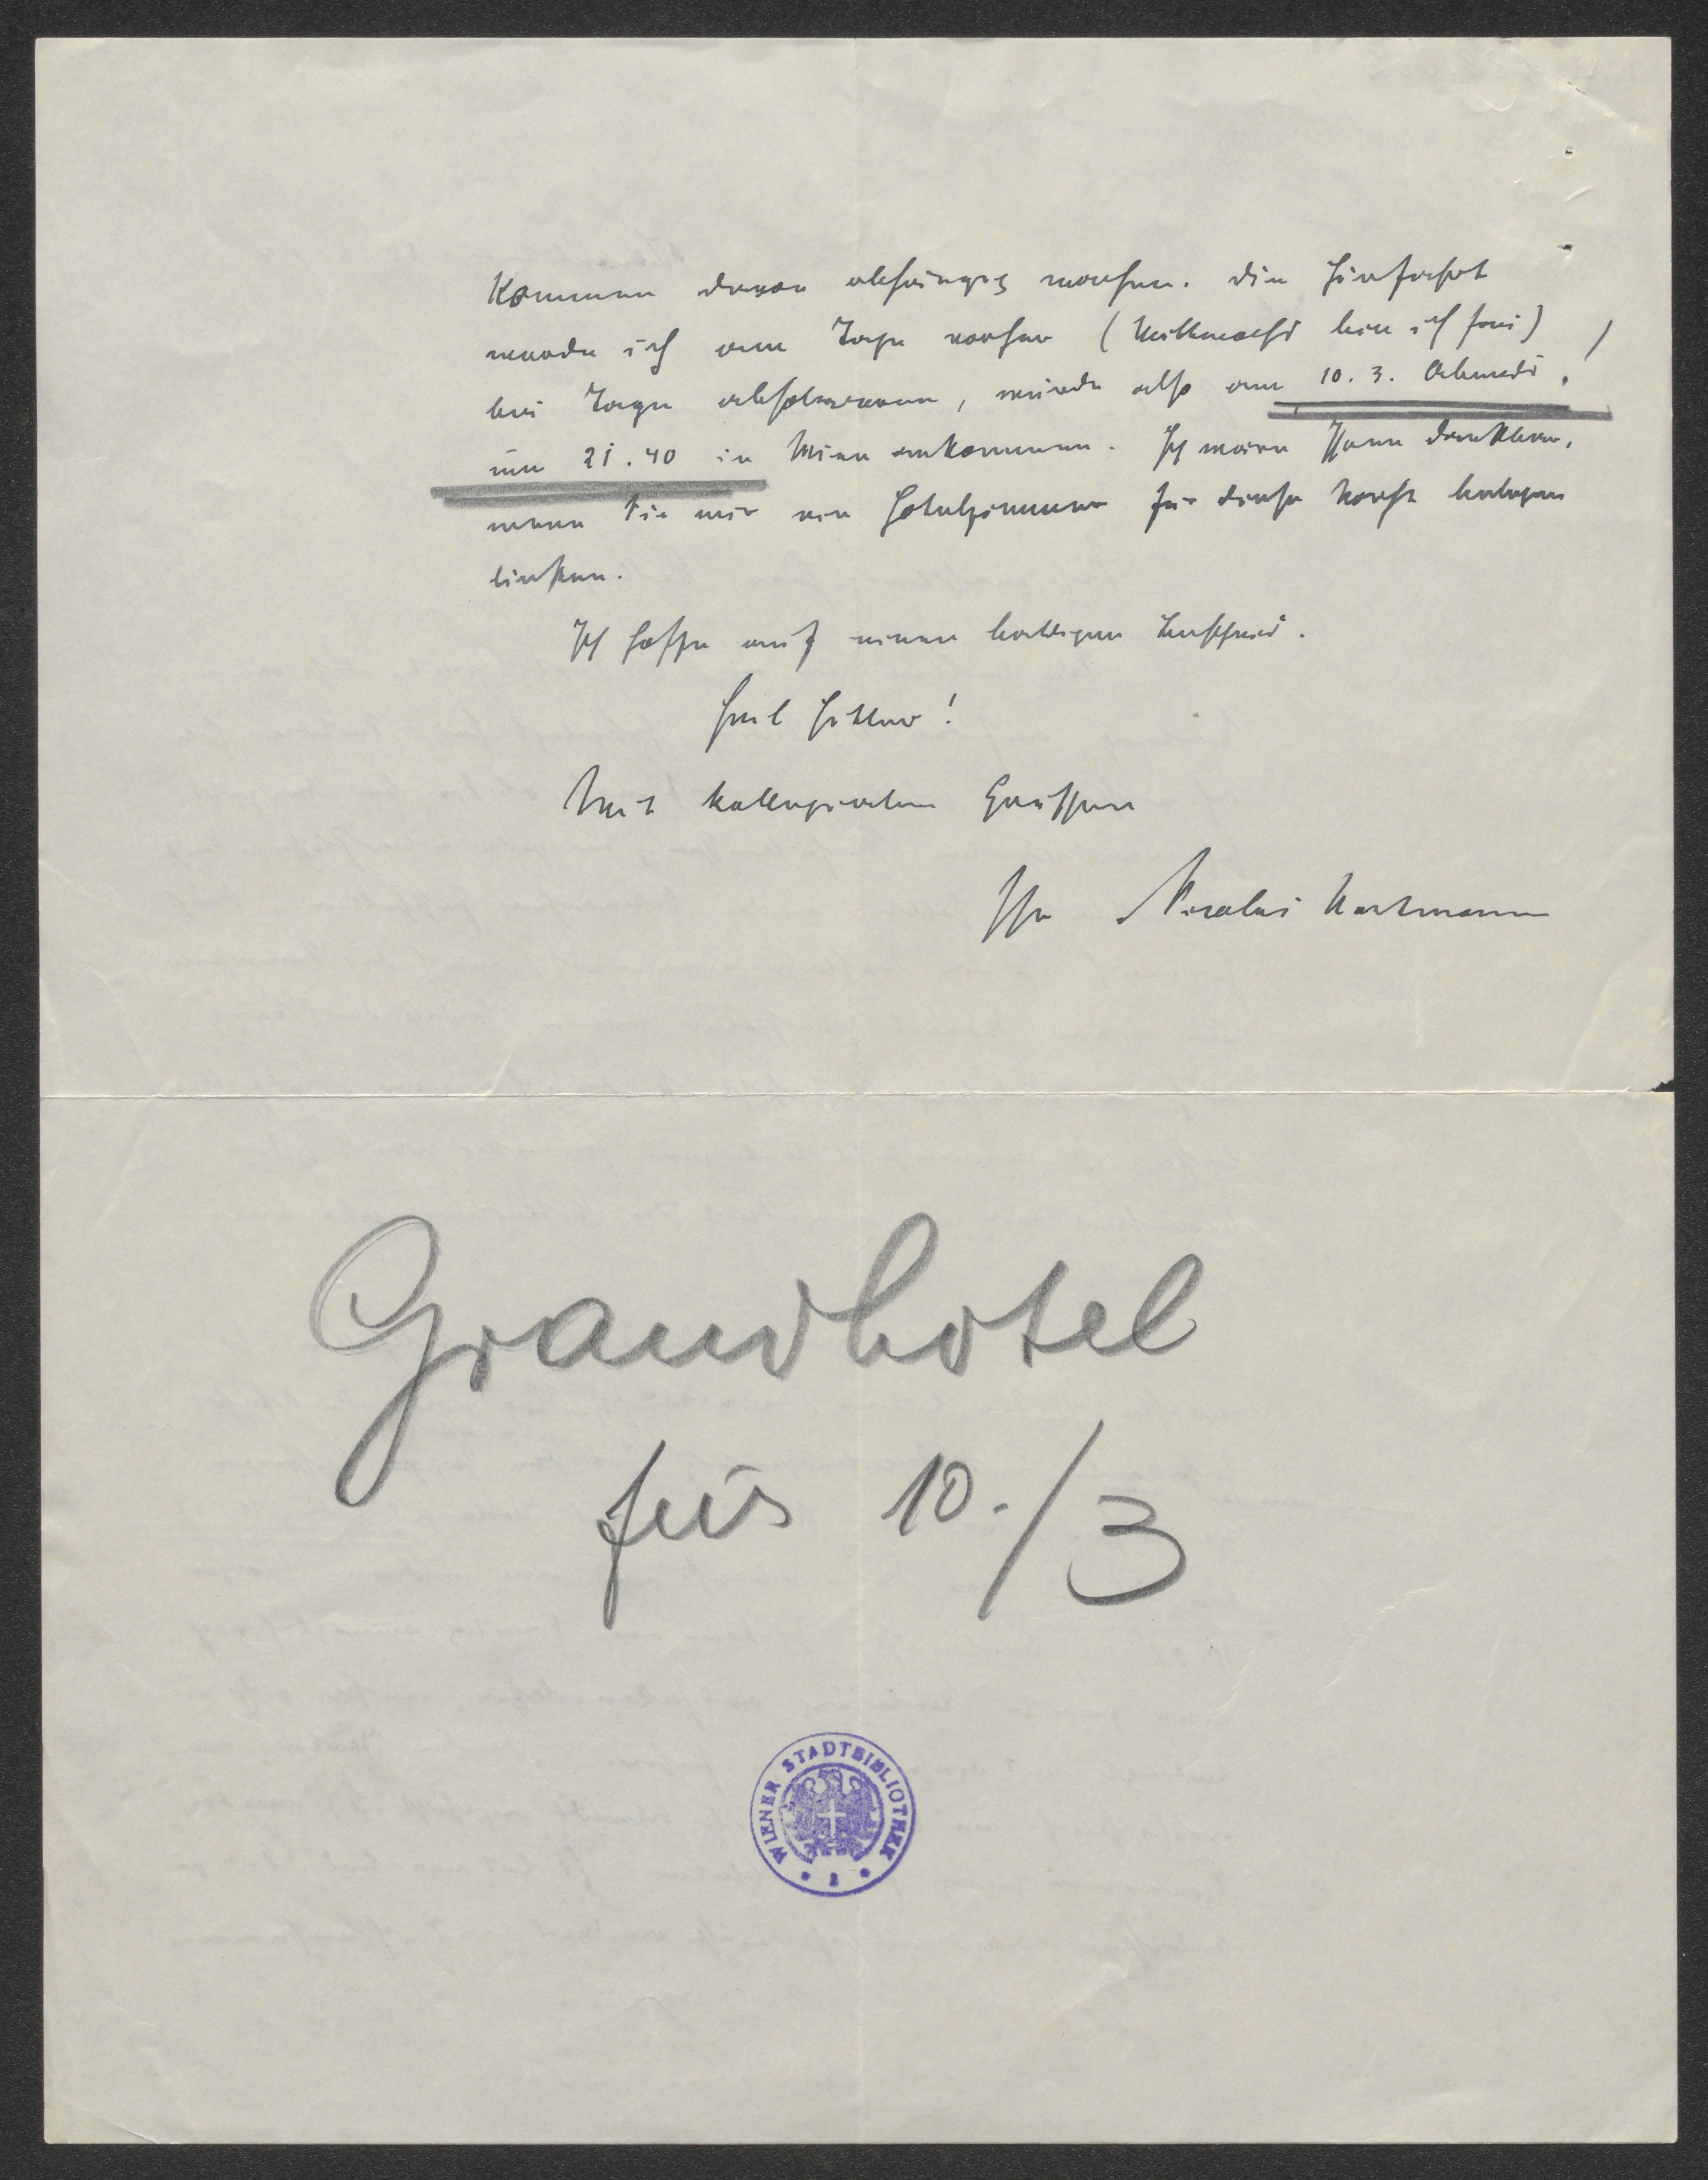 Kommen davon abhängig machen. Die Hinfahrt
werde ich am Tage vorher (Mittwochs bin ich frei)
bei Tage absolvieren, würde also am 10. 3. Abends,
um 21.40 in Wien ankommen. Ich wäre Ihnen dankbar,
wenn Sie mir ein Hotelzimmer für diese Nacht belegen
liessen.
Ich hoffe auf einen baldigen Bescheid.
Heil Hitler!
Mit kollegialen Grüssen
Ihr Nicolai Hartmann
Grandhotel
für 10./3
WIENER STADTBIBLIOTHEK